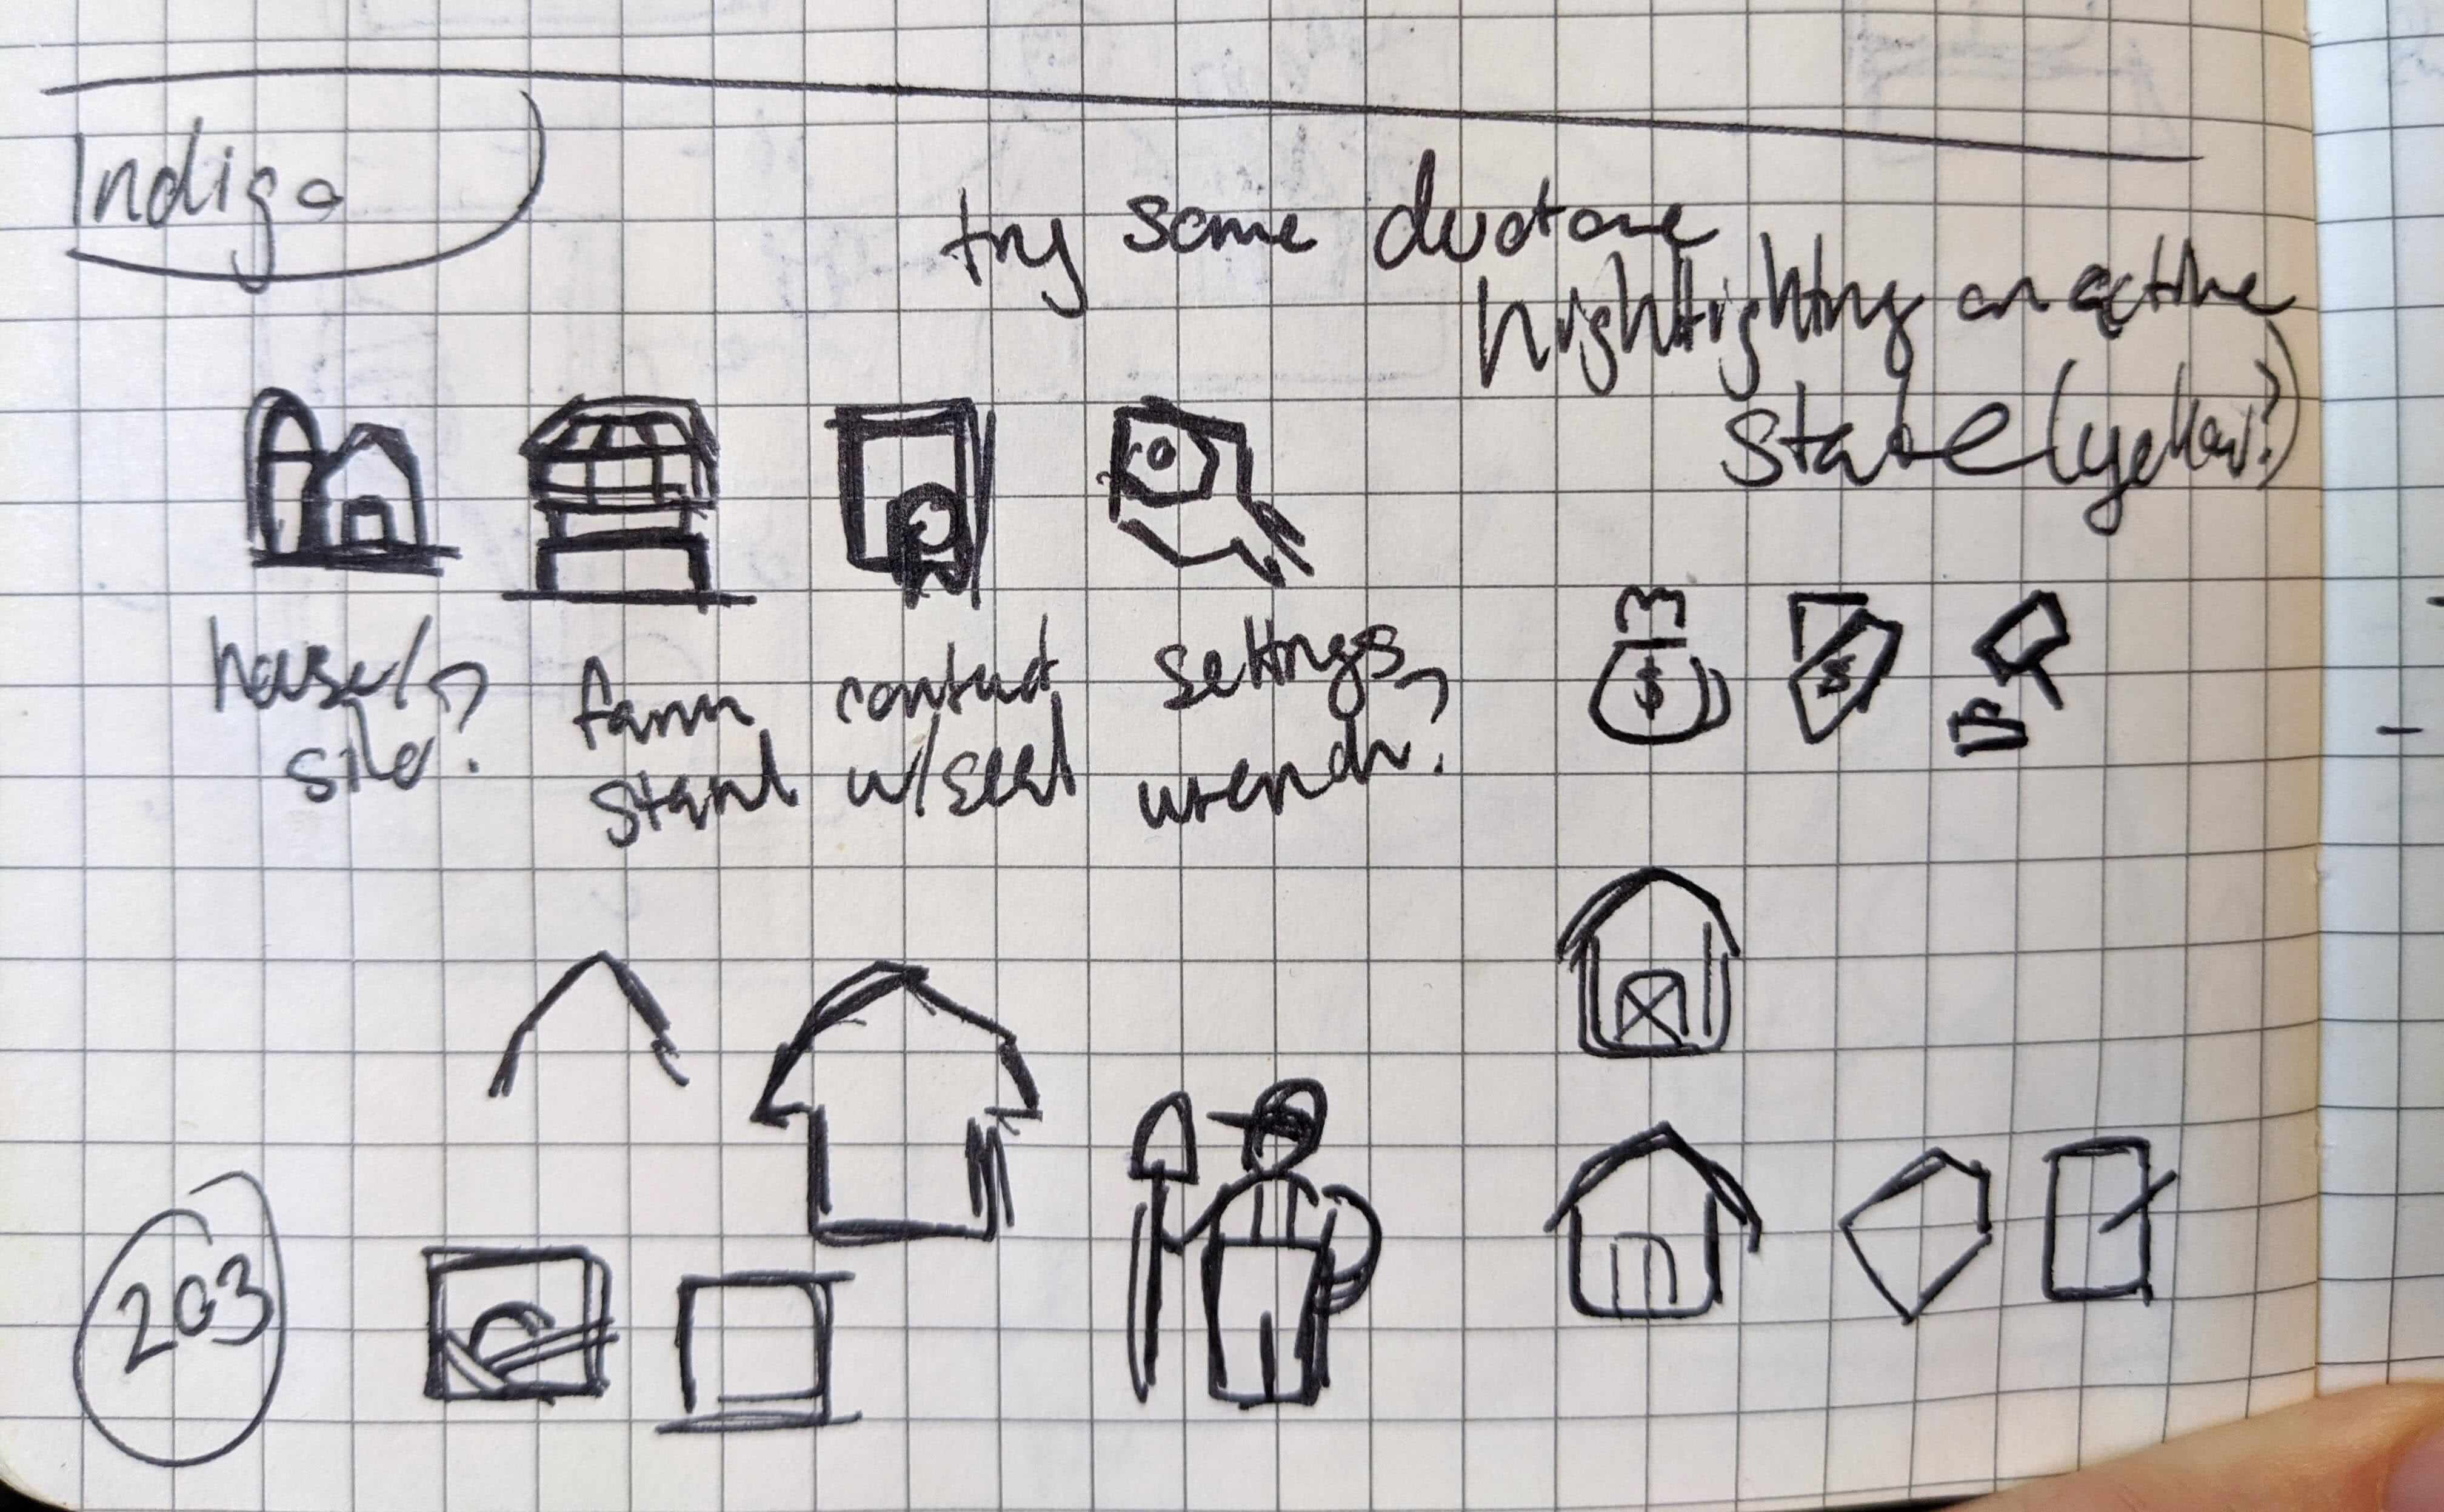 Indigo
try some duotone
highlighting on active
state (yellow?)
house/
silo?
farm
stand
contract
w/seal
settings
wrench?
$
$
203